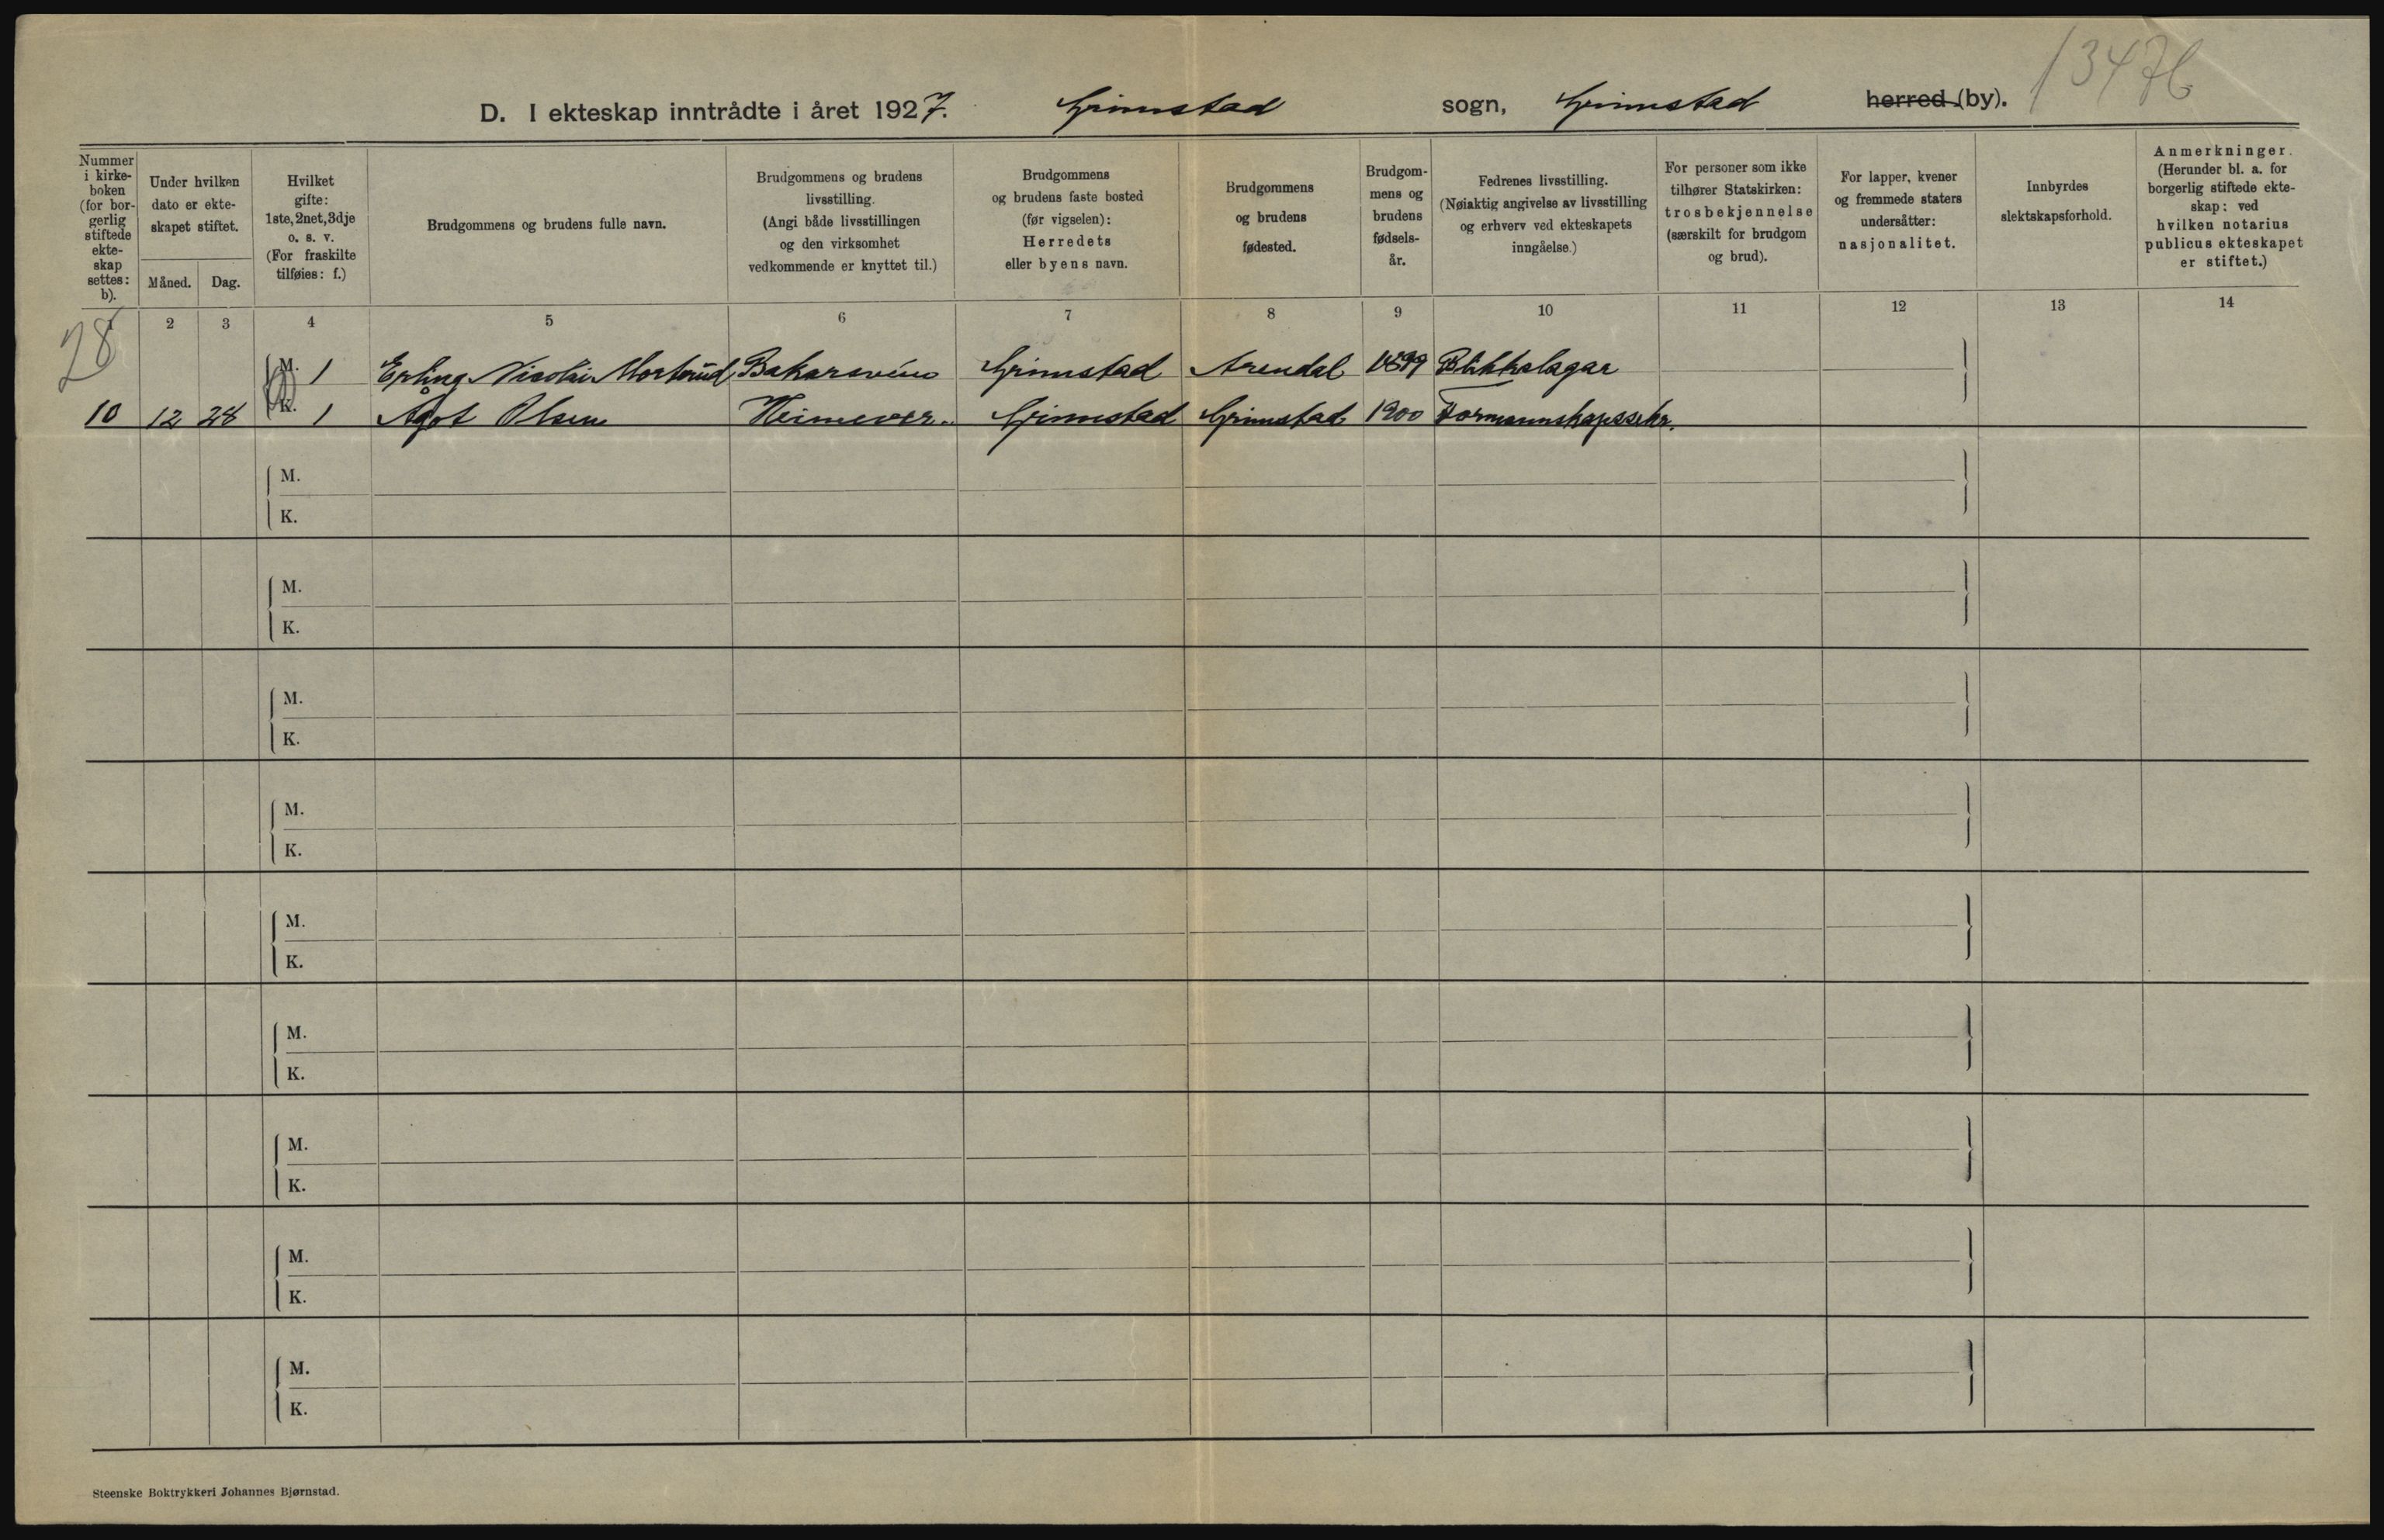 13476
D. I ekteskap inntrådte i året 1927. Grimstad sogn, Grimstad herred (by).
Nummer i kirkeboken (for borgerlig stiftede ekteskap settes: b).
Under hvilken dato er ekteskapet stiftet.
Måned. Dag.
Hvilket gifte: 1ste, 2net, 3dje o. s. v. (For fraskilte tilføies: f.)
Brudgommens og brudens fulle navn.
Brudgommens og brudens livsstilling. (Angi både livsstillingen og den virksomhet vedkommende er knyttet til.)
Brudgommens og brudens faste bosted (før vigselen): Herredets eller byens navn.
Brudgommens og brudens fødested.
Brudgommens og brudens fødselsår.
Fedrenes livsstilling. (Nøiaktig angivelse av livsstilling og erhverv ved ekteskapets inngåelse.)
For personer som ikke tilhører Statskirken: trosbekjennelse (særskilt for brudgom og brud).
For lapper, kvener og fremmede staters undersåtter: nasjonalitet.
Innbyrdes slektskapsforhold.
Anmerkninger. (Herunder bl. a. for borgerlig stiftede ekteskap: ved hvilken notarius publicus ekteskapet er stiftet.)
1 2 3 4 5 6 7 8 9 10 11 12 13 14
28
M. 1 Erling Nicolai Mortensen Bakarsvein Grimstad Arendal 1899 Blikkslagar
10 12 28 K. 1 Ågot Olsen Heimever. Grimstad Grimstad 1900 Formannskapssekr.
M.
K.
M.
K.
M.
K.
M.
K.
M.
K.
M.
K.
M.
K.
M.
K.
M.
K.
Steenske Boktrykkeri Johannes Bjørnstad.